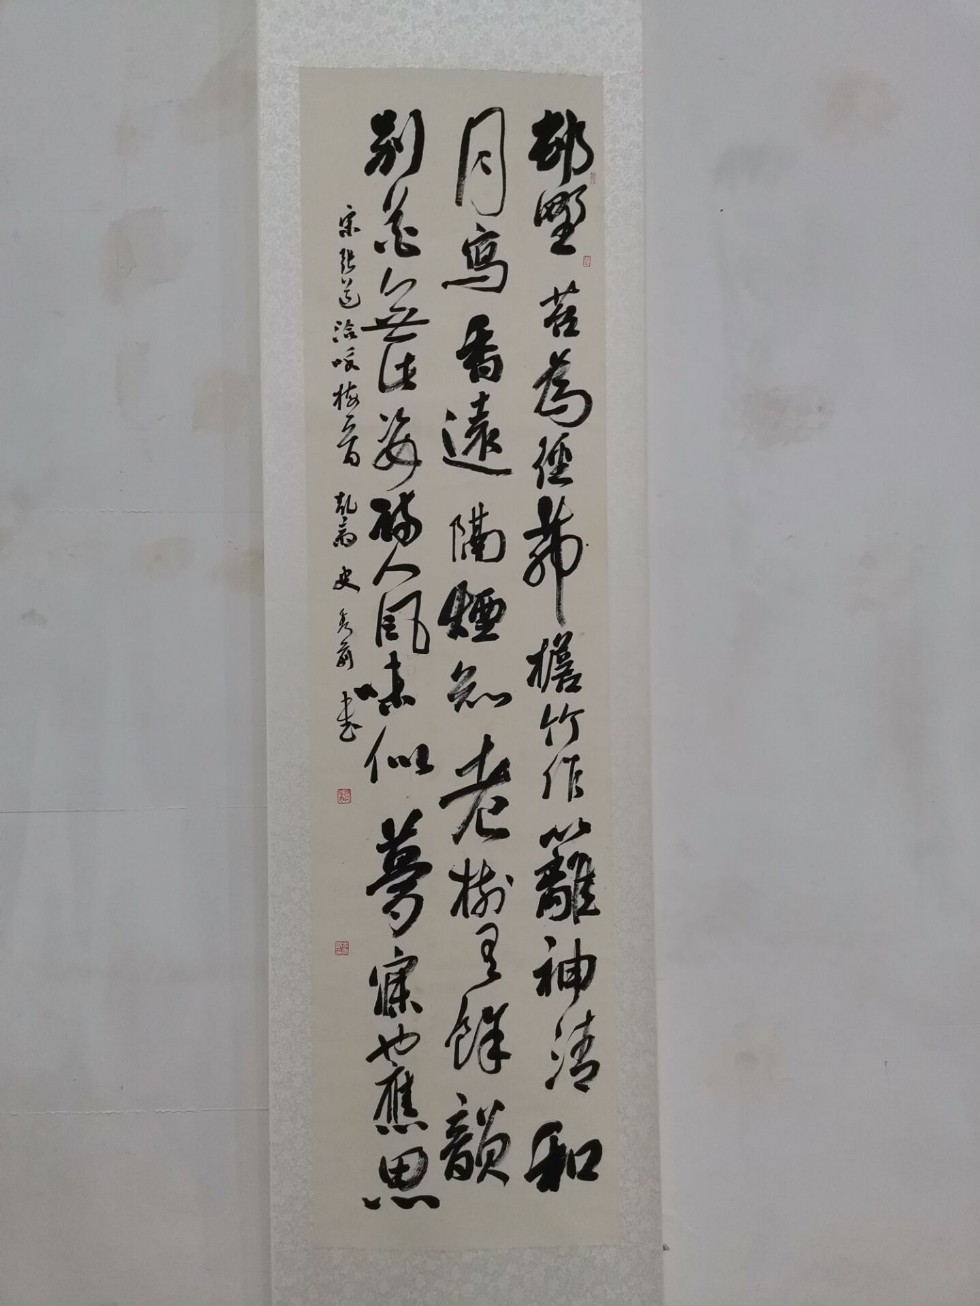 邨墅苔為徑茅檐竹作籬神清和
月寫香遠隔煙知老樹有餘韻
別花無此姿詩人風味似夢寐也應思
宋張道洽咏梅一首 史 書